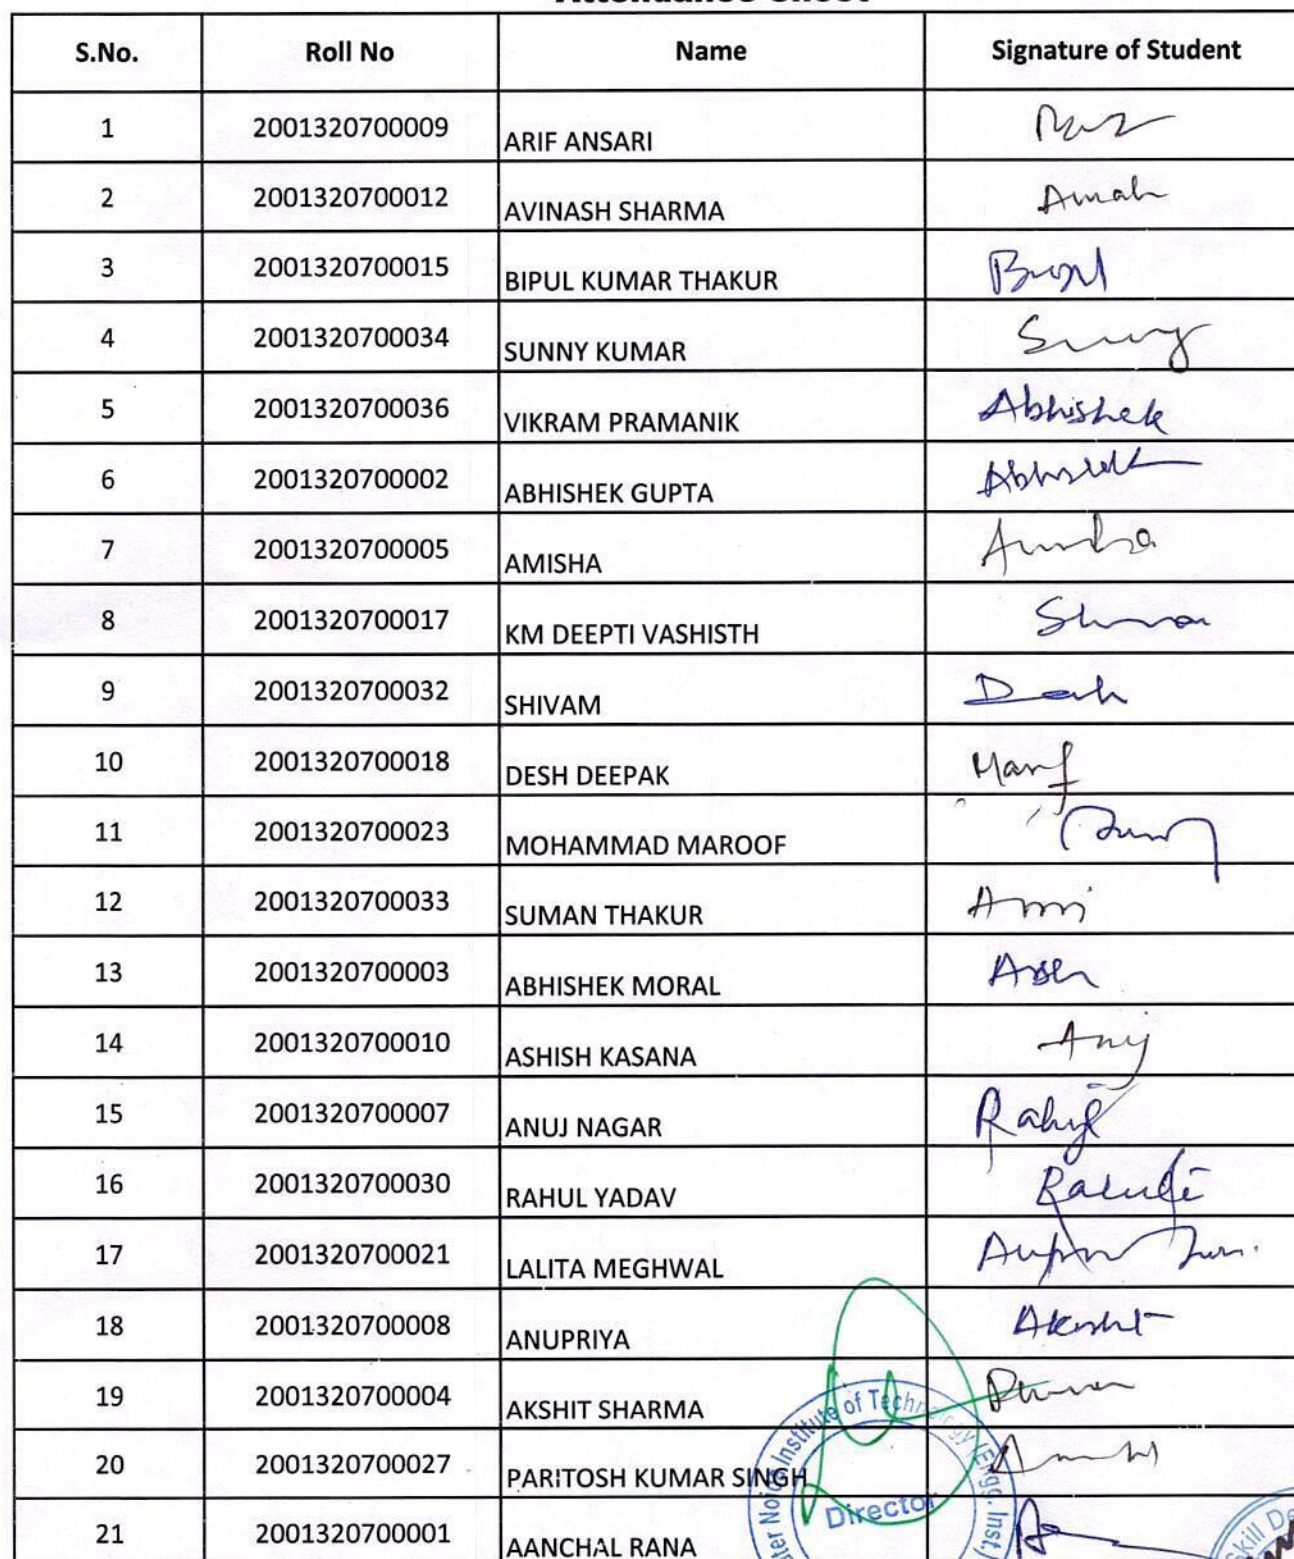 Attendance Sheet
S.No. Roll No Name Signature of Student
1 2001320700009 ARIF ANSARI
2 2001320700012 AVINASH SHARMA
3 2001320700015 BIPUL KUMAR THAKUR
4 2001320700034 SUNNY KUMAR
5 2001320700036 VIKRAM PRAMANIK Abhishek
6 2001320700002 ABHISHEK GUPTA
7 2001320700005 AMISHA
8 2001320700017 KM DEEPTI VASHISTH
9 2001320700032 SHIVAM
10 2001320700018 DESH DEEPAK
11 2001320700023 MOHAMMAD MAROOF
12 2001320700033 SUMAN THAKUR
13 2001320700003 ABHISHEK MORAL
14 2001320700010 ASHISH KASANA Anuj
15 2001320700007 ANUJ NAGAR Rahul
16 2001320700030 RAHUL YADAV
17 2001320700021 LALITA MEGHWAL
18 2001320700008 ANUPRIYA Akshit
19 2001320700004 AKSHIT SHARMA
20 2001320700027 PARITOSH KUMAR SINGH
21 2001320700001 AANCHAL RANA
Institute of Technology (Engg. Inst.
Director